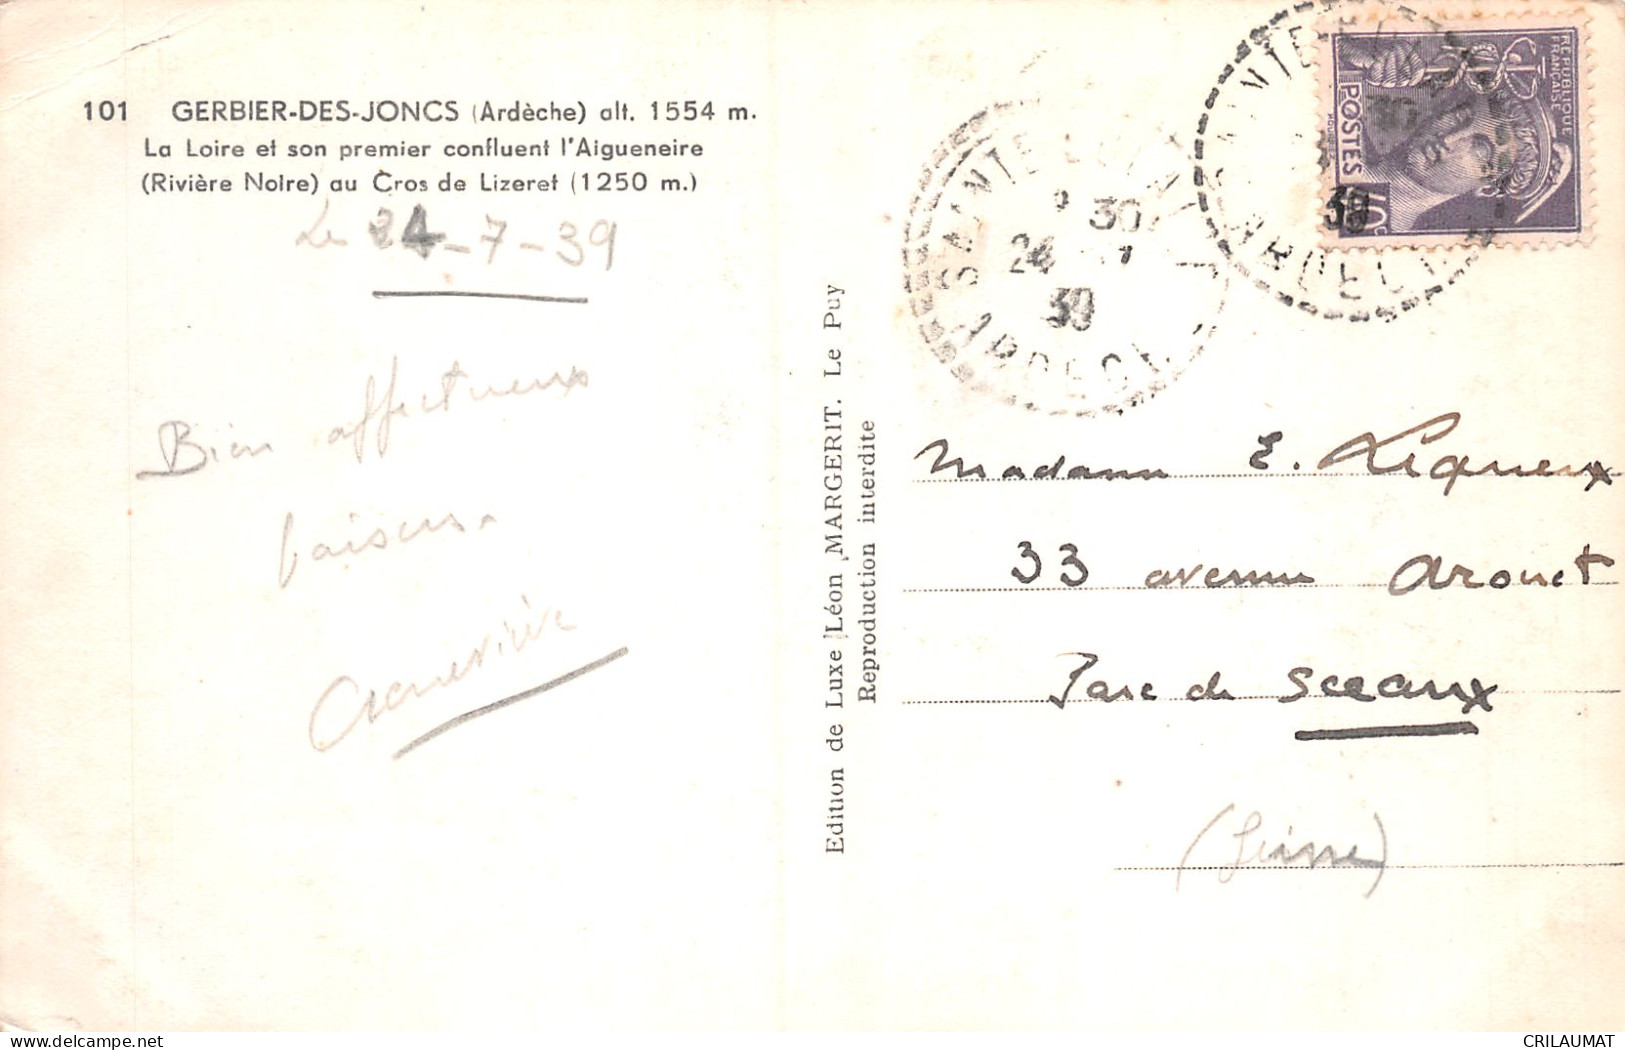 101 GERBIER-DES-JONCS (Ardèche) alt. 1554 m.
La Loire et son premier confluent l'Aigueneire
(Rivière Noire) au Cros de Lizeret (1250 m.)
Le 24-7-39
Bien affectueux
baisers.
Geneviève
Edition de Luxe Léon MARGERIT. Le Puy
Reproduction interdite
SAINTE
30
24
39
ARDECHE
REPUBLIQUE
FRANÇAISE
POSTES
Madame E. Liqueux
33 avenue Arouet
Parc de Sceaux
(Seine)
delcampe.net
CRILAUMAT